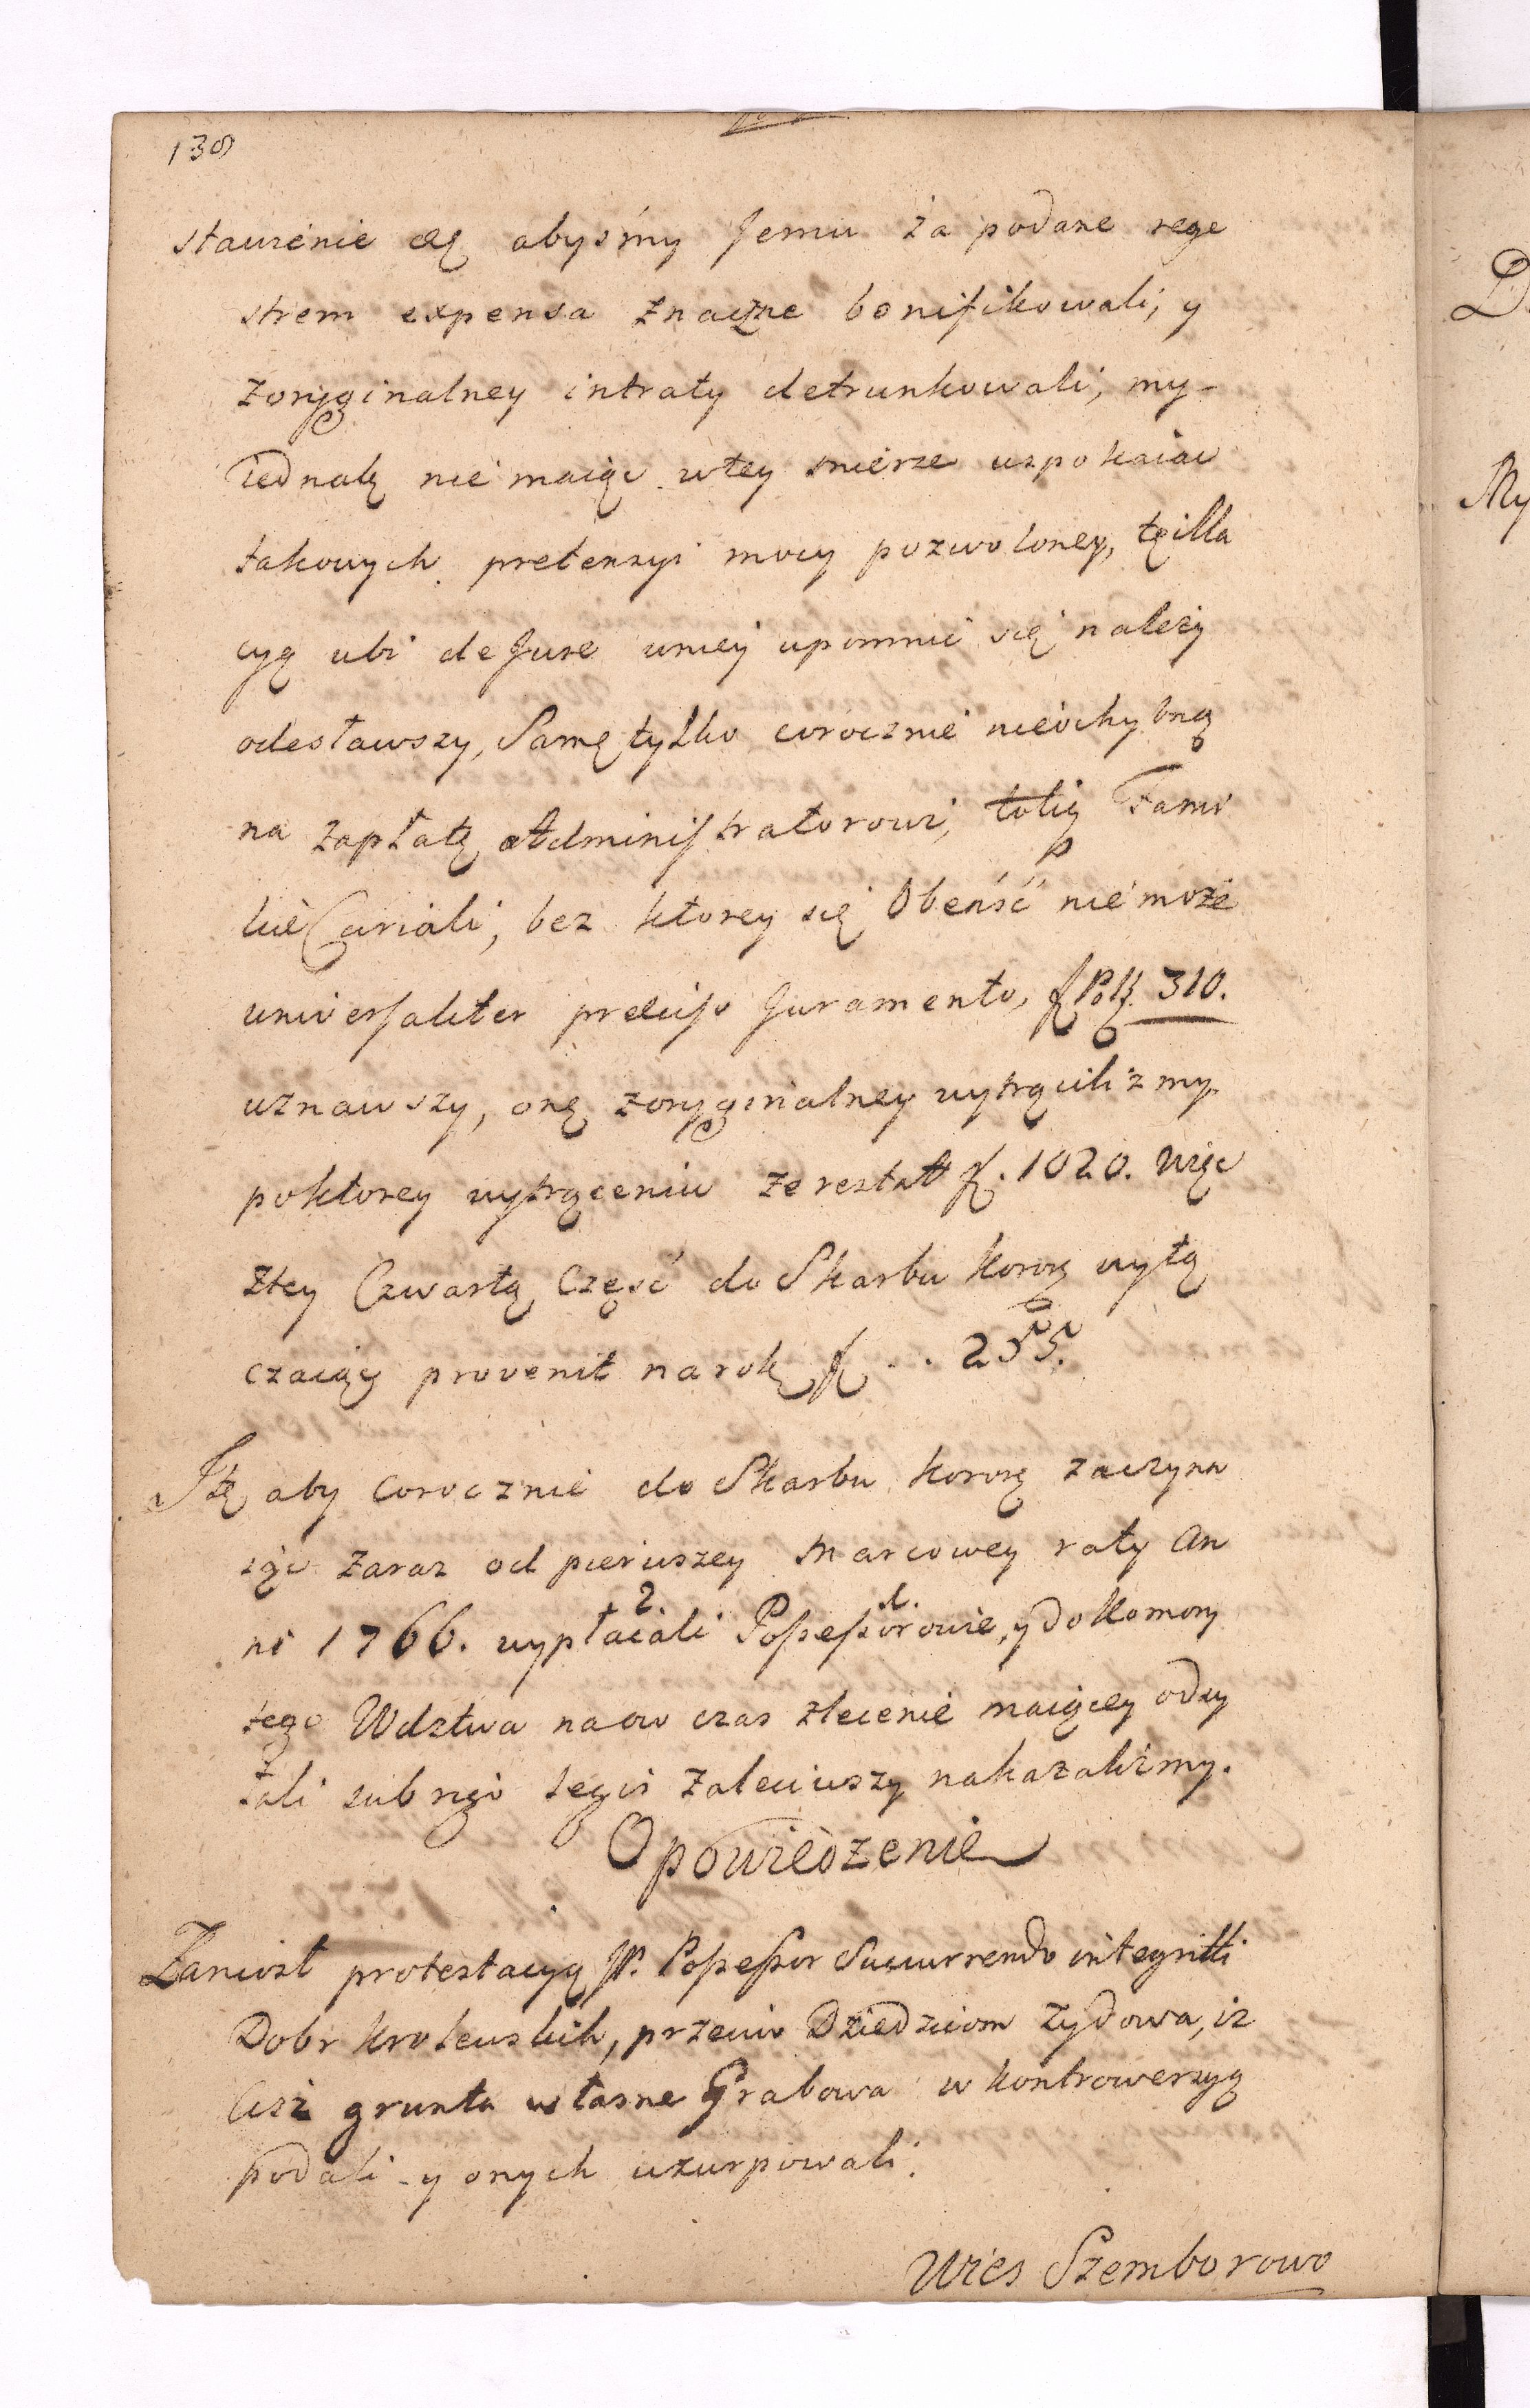 138
stawienie się abyśmy Jemu za podane rege
strem expensa znaczne bonifikowali, y
z oryginalney intraty detrunkowali, my
iednak nie maiąc w tey mierze uspokaiac
takowych pretensyi mocy pozwoloney, tę illa
cyą ubi de Jure u niey upomnieć się należy
odesławszy, Samę tylko corocznie nieochybną
na zapłatę Administratorowi, Fami
lie Curiali, bez ktorey się Obeńść nie może
universaliter precuso Juramento, f Pols. 310.
uznawszy, onę z oryginalney wytrąciliźmy
po ktorey wytrąceniu zerestat f. 1020. więc
z tey Czwartą Część do Skarbu Koroą wyłą
czaiący provenit na rok f .. 255.
Itę aby Corocznie do Skarbu Koroą zaczyna
iąc zaraz od pierwszey Marcowey raty An
ni 1766. wypłacali 2. Possessorowie, 1. y do Komory
tego Wdztwa na ow czas zlecenie maiącey odsy
łali sub rigo legis zaleciwszy nakazaliźmy.
Opowiedzenie
Zaniosł protestacyą JP. Possessor Succurrendo integritti
Dobr Krolewskich, przeciw Dziedzicom Zydowa, iz
Ciż grunta własne Grabowa w kontrowersyą
podali y onych uzurpowali.
Wies Szemborowo
D
My